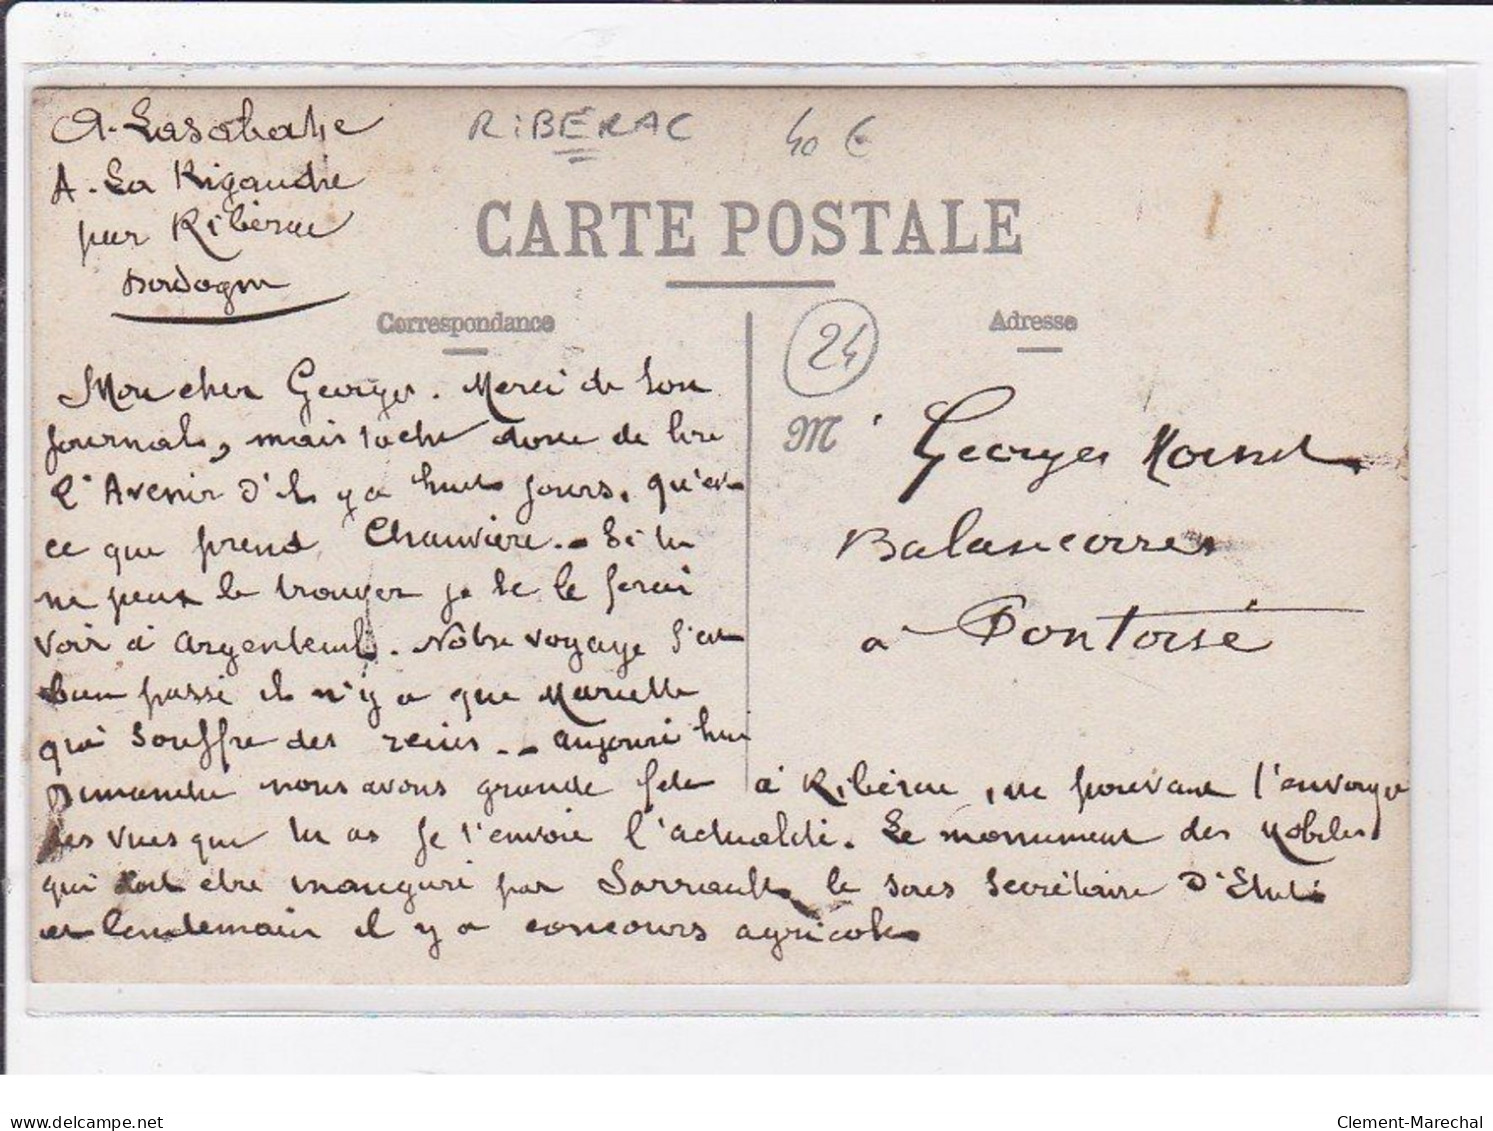 A. Lasabatie
A. La Rigaudie
par Ribérac
Dordogne
RiBERAC
40 €
CARTE POSTALE
Correspondance
24
Adresse
Mon cher Georges. Merci de ton
journal, mais tache donc de lire
l'Avenir d'il y a huit jours, qu'est
ce que prend Chauvière. - Si tu
ne peux le trouver je te le ferai
voir à Argenteuil. Nôtre voyage s'est
bien passé il n'y a que Marcelle
qui souffre des reins. - aujourd'hui
Dimanche nous avons grande fete à Ribérac, ne pouvant t'envoyer
des vues que tu as je t'envoie l'actualité. Le monument des Mobiles
qui doit etre inauguré par Sarraut le sous Secrétaire d'Etat
et lendemain il y a concours agricole
M. Georges
Balancorres
a Pontoise
delcampe.net
Clement-Marechal